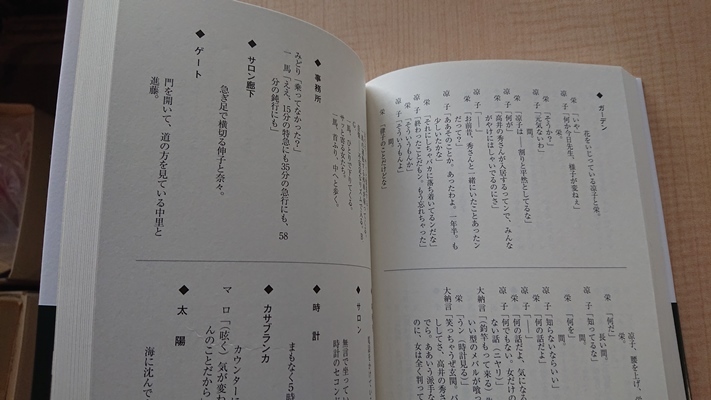 ◆ガーデン
花をいじっている凉子と栄。
凉子「何か今日先生、様子が変ねえ」
栄「いや」
間。
凉子「元気ないわ」
栄「そうか?」
間。
栄「凉子は――割りと平然としてるな」
凉子「何が」
栄「高井の秀さんが入居するってンで、みんな
がやけにはしゃいでるのにさ」
凉子「――」
栄「お前昔、秀さんと一緒にいたことあったン
だって?」
凉子「ああそのことか。あったわよ。一年半。も
少しいたかな」
栄「それにしちゃバカに落ち着いてるンだな」
凉子「終わったことだもン。もう忘れちゃった」
栄「そういうもんか」
凉子「そういうもんよ」
栄「律子のことだけどな」
凉子、腰を上げ、
栄。
栄「何だ」
長い間。
凉子「知ってるな」
間。
栄「何を」
間。
凉子「知らないならいい」
栄「何の話だよ」
凉子「――」
栄「何の話だよ、気になる
凉子「何でもない。女だけの
ない話(ニヤリ)
大納言「(釣竿もって来る)
いい型のメバルが喰つ
栄「ウン(時計見る)
大納言「笑っちゃうぜ玄関、バ
ししてさ、高井の秀さ
でら、ああいう派手な
のに、女は全く判って
馬、首ふり、中へと歩く。
◆事務所
みどり「乗ってなかった?」
一馬「ええ、15分の特急にも35分の急行にも、58
分の鈍行にも」
◆サロン廊下
急ぎ足で横切る伸子と奈々。
◆ゲート
門を開いて、道の方を見ている中里と
進藤。
◆サロン
無言で坐ってい
時計のセコン
◆時計
まもなく5時
◆カサブランカ
カウンターに
マロ「(呟く)気が変わ
んのことだから
◆太陽
海に沈んで